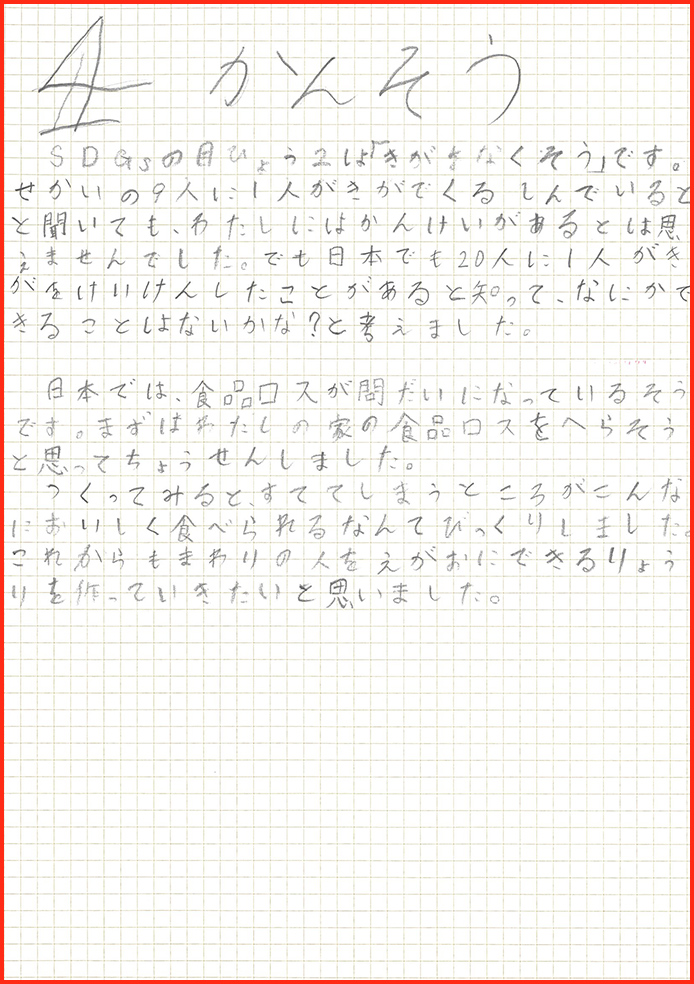 4 かんそう
SDGsの目ひょう2は「きがをなくそう」です。
せかいの9人に1人がきがでくるしんでいると
と聞いても、わたしにはかんけいがあるとは思
えませんでした。でも日本でも20人に1人がき
がをけいけんしたことがあると知って、なにかで
きることはないかな?と考えました。
日本では、食品ロスが問だいになっているそう
です。まずはわたしの家の食品ロスをへらそう
と思ってちょうせんしました。
つくってみると、すててしまうところがこんな
においしく食べられるなんてびっくりしました。
これからもまわりの人をえがおにできるりょう
りを作っていきたいと思いました。